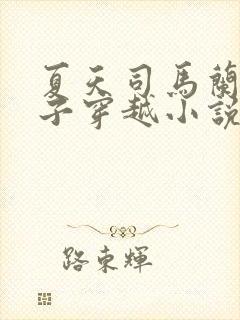 夏天司馬蘭
子穿越小說
路東輝